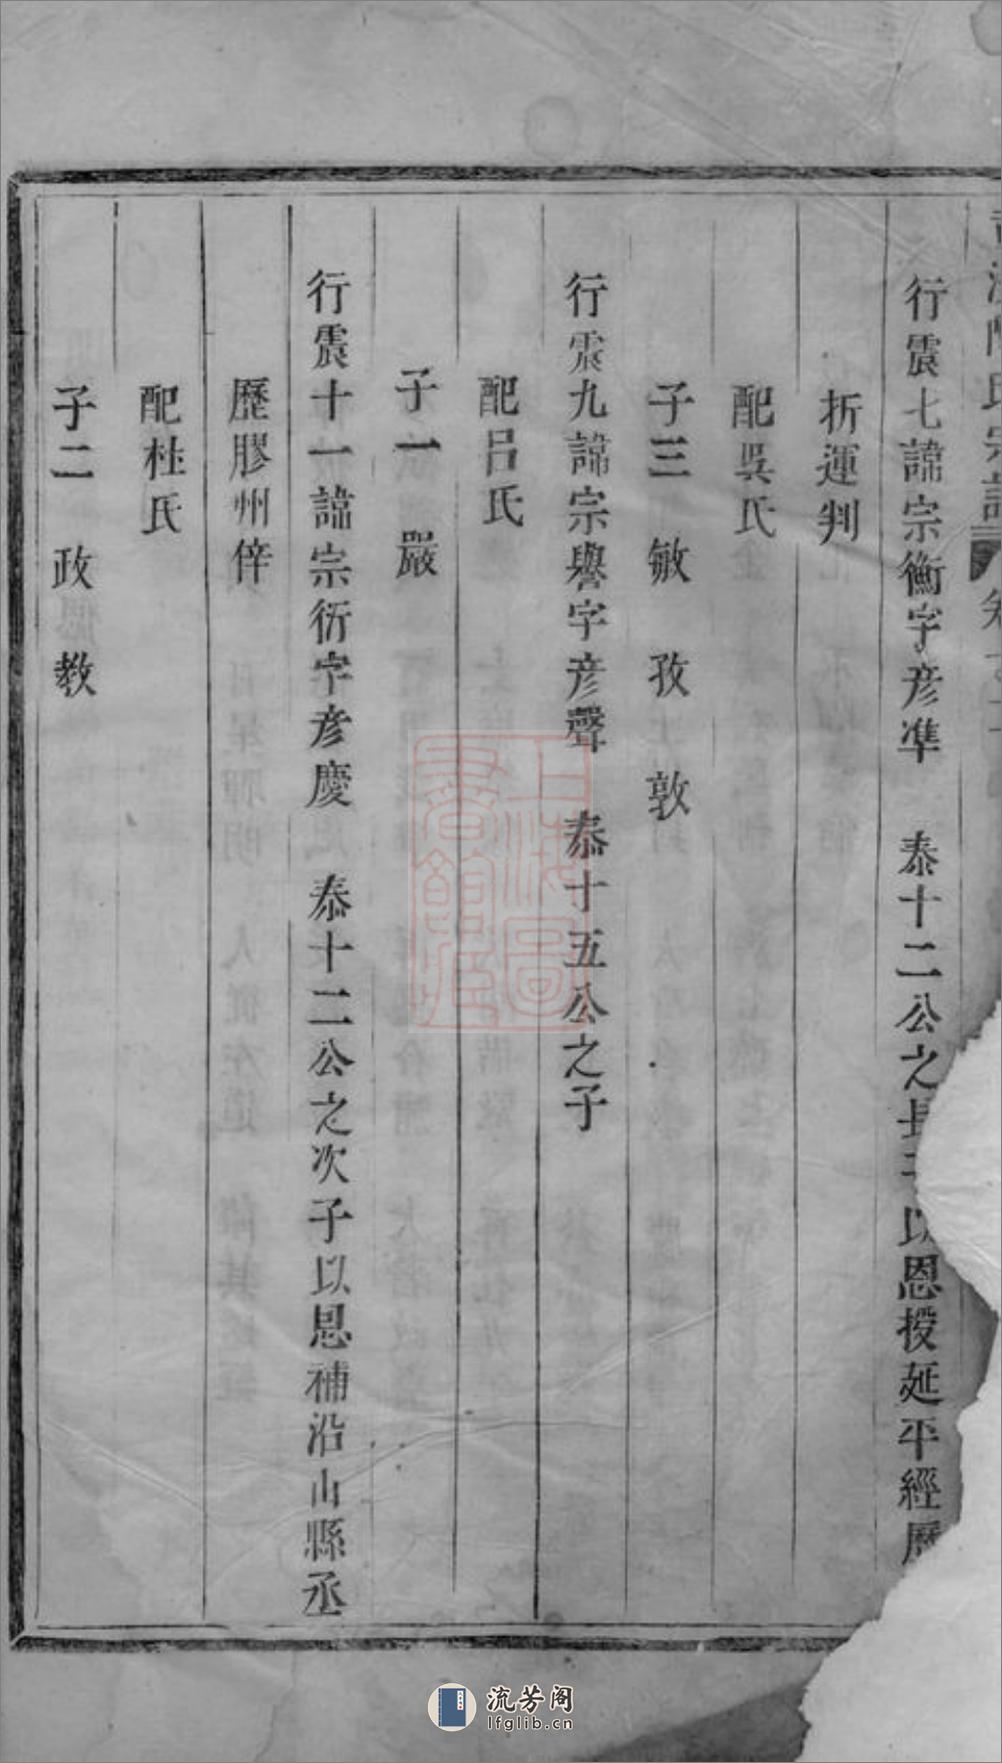 氏宗譜
行震七諱宗衡字彦準　泰十二公之長子以恩授延平經歷
折運判
配吳氏
子三　敏　孜　敦
行震九諱宗譽字彦聲　泰十五公之子
配呂氏
子一　嚴
行震十一諱宗衍字彦慶　泰十二公之次子以恩補沿山縣丞
歷膠州倅
配杜氏
子二　政　教
上海圖書館藏
流芳阁
lfglib.cn